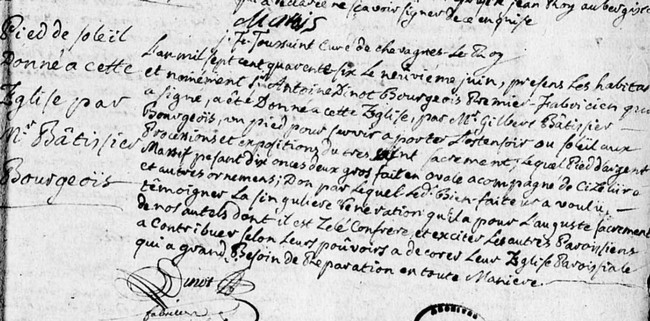 qu'a déclaré ne sçavoir signer de ce enquise
Marois
j. fr. Toussaint Curé de chevagnes-Le-Roy
Pied de soleil
Donné a cette
Eglise par
Mr Bâtissier
Bourgeois
L'an mil sept cent quarente six Le neuvième juin, presens Les habitas
et nomément Sr Antoine Dinot Bourgeois Premier fabricien qui
a signé, a été Donné a cette Eglise, par Mr Gilbert Bâtissier
Bourgeois, un pied pour servir a porter L'ostensoir ou soleil aux
Processions et expositions du tres saint Sacrement; Lequel Pied d'argent
Massif pesant dix onces deux gros fait en ovale acompagné de Cizelure
et autres ornemens; Don par Lequel Led. Bien-faiteur a voulu
témoigner La singuliere Vénération qu'il a pour L'auguste sacrement
de nos autels dont il est Zelé Confrere, et exciter Les autres Paroissiens
a Contribuer selon Leurs pouvoirs a décorer Leur Eglise Paroissiale
qui a grand Besoin de Réparation en toute Maniere.
Dinot
fabricien